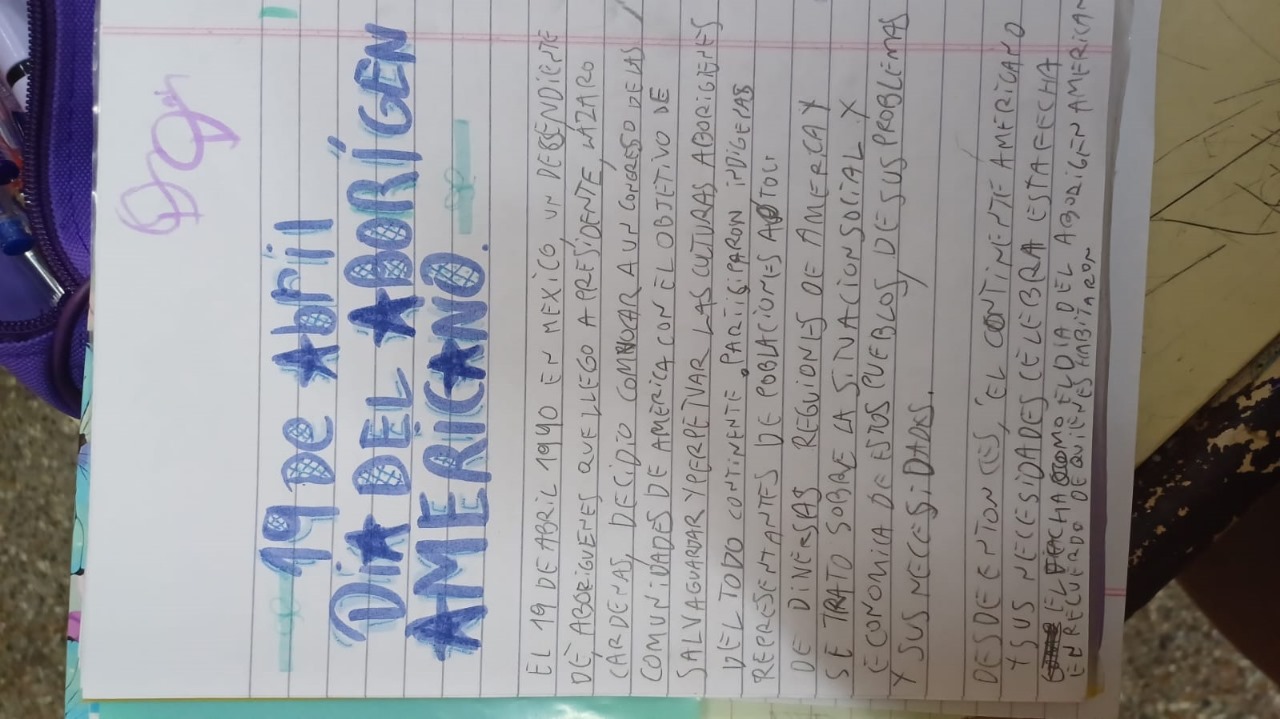 19 DE Abril
DiA DEL ABORÍGEN
AMERICANO.
EL 19 DE ABRIL 1940 EN MEXICO UN DESENDIENTE
DE ABORIGUENES QUE LLEGO A PRESIDENTE, LÁZARO
CARDENAS, DECIDIO CONVOCAR A UN CONGRESO DE LAS
COMUNIDADES DE AMÉRICA CON EL OBJETIVO DE
SALVAGUARDAR Y PERPETUAR LAS CULTURAS ABORIGIENES
DEL TODO CONTINENTE, PARTICIPARON INDIGENAS
REPRESENTANTES DE POBLACIONES AUTOC.
DE DIVERSAS REGUIONES DE AMERICA Y
SE TRATO SOBRE LA SITUACION SOCIAL Y
ECONOMICA DE ESTOS PUEBLOS, DE SUS PROBLEMAS
Y SUS NECCESIDADES.
DESDE ENTONCES, EL CONTINENTE AMERICANO
Y SUS NECESIDADES CELEBRA ESTA FECHA
COMO EL DIA DEL ABORIGEN AMERICAN
EN RECUERDO DE QUIENES HABITARON